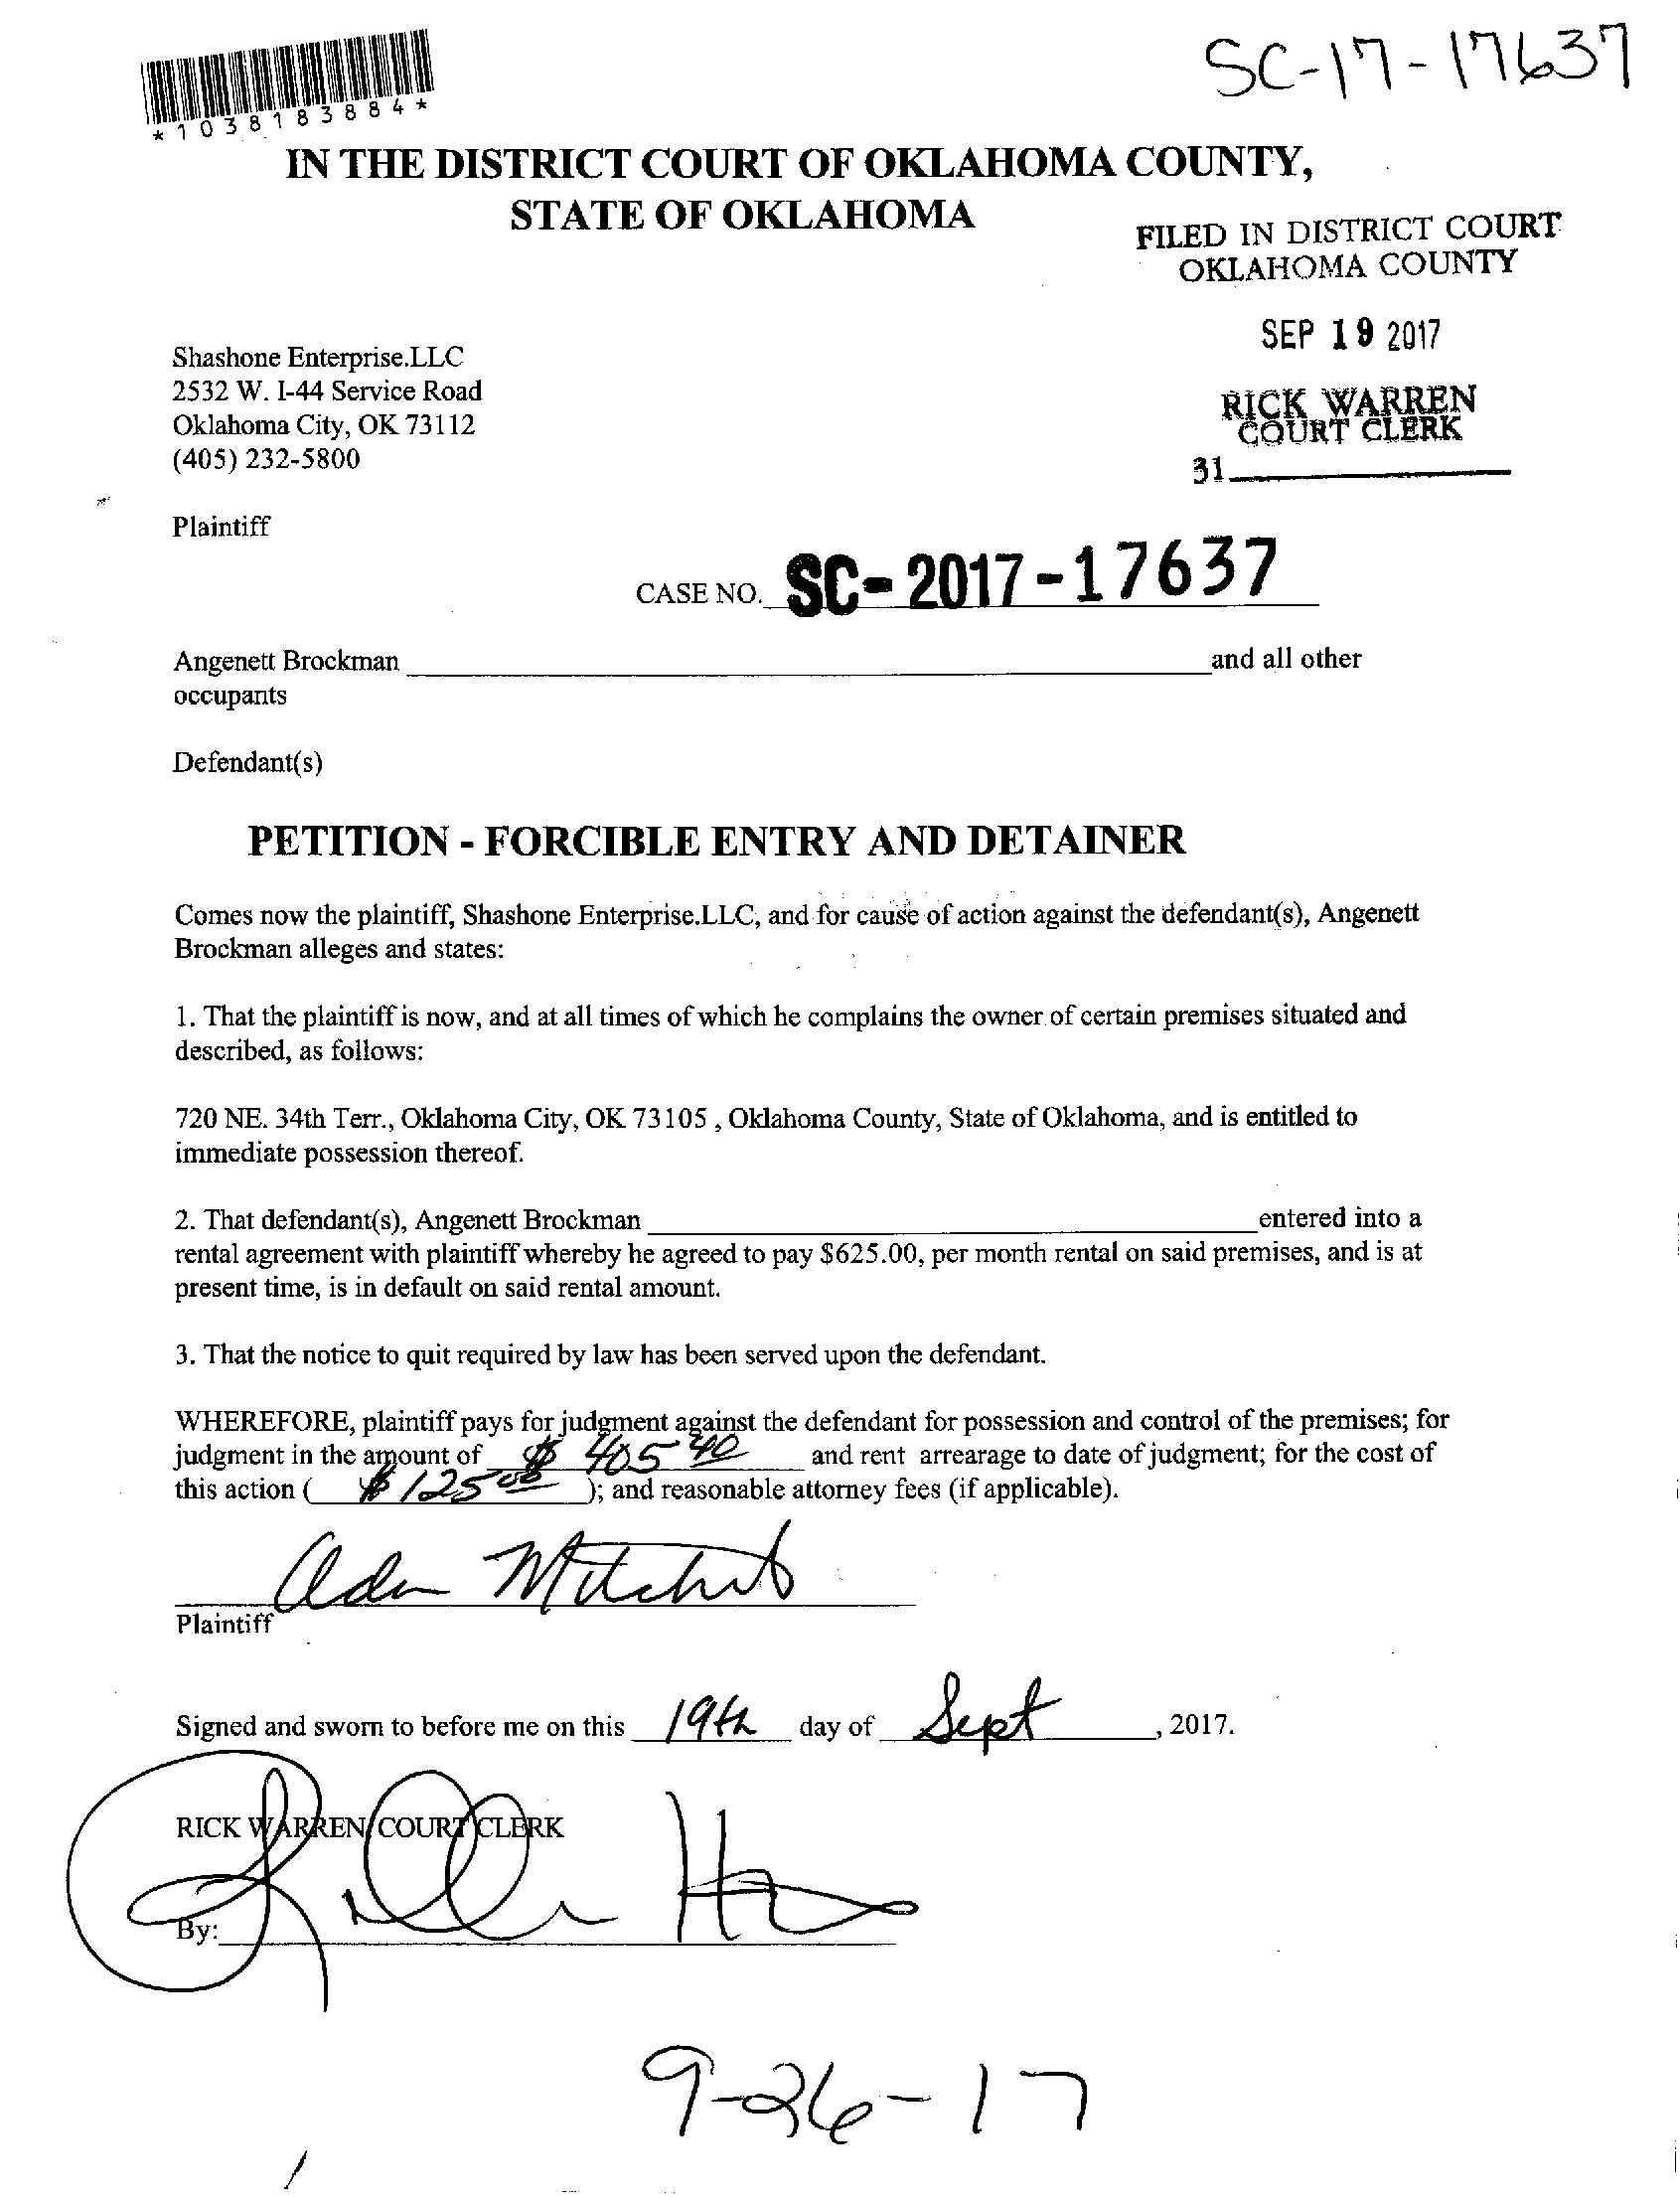 SC-17-17637
*1038183884*
IN THE DISTRICT COURT OF OKLAHOMA COUNTY,
STATE OF OKLAHOMA
FILED IN DISTRICT COURT
OKLAHOMA COUNTY
SEP 19 2017
RICK WARREN
COURT CLERK
31
Shashone Enterprise.LLC
2532 W. I-44 Service Road
Oklahoma City, OK 73112
(405) 232-5800
Plaintiff
CASE NO. SC-2017-17637
Angenett Brockman and all other
occupants
Defendant(s)
PETITION - FORCIBLE ENTRY AND DETAINER
Comes now the plaintiff, Shashone Enterprise.LLC, and for cause of action against the defendant(s), Angenett
Brockman alleges and states:
1. That the plaintiff is now, and at all times of which he complains the owner of certain premises situated and
described, as follows:
720 NE. 34th Terr., Oklahoma City, OK 73105 , Oklahoma County, State of Oklahoma, and is entitled to
immediate possession thereof.
2. That defendant(s), Angenett Brockman entered into a
rental agreement with plaintiff whereby he agreed to pay $625.00, per month rental on said premises, and is at
present time, is in default on said rental amount.
3. That the notice to quit required by law has been served upon the defendant.
WHEREFORE, plaintiff pays for judgment against the defendant for possession and control of the premises; for
judgment in the amount of $ 405 40 and rent arrearage to date of judgment; for the cost of
this action ( $ 125 00 ); and reasonable attorney fees (if applicable).
Plaintiff
Signed and sworn to before me on this 19th day of Sept , 2017.
RICK WARREN COURT CLERK
By:
9-26-17